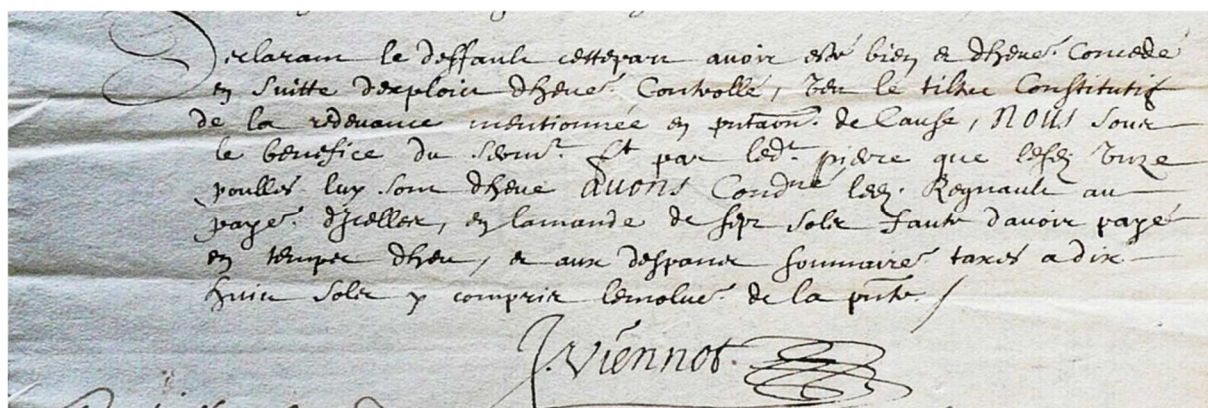 Declarant le deffault cettepart avoir esté bien et dheue.t Concedé
en suitte dexploict dheue.t Controllé, veu le tiltre Constitutif
de la redevance mentionnée en pntaon. de Cause, NOUS soux
le benefice du serm.t Et par led.t pierre que lesd. unze
poulles luy sont dheue AVONS Condné led. Regnault au
paye.t dicelles, en lamande de sept solz faute davoir payé
en temps dheu, et aux despans sommaire.t taxés a dix
huict solz y compris lemolue.t de la pnte /
J. Viennot.